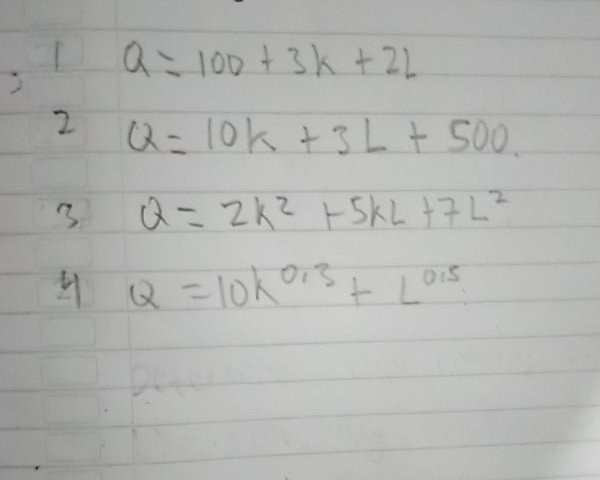 1 Q = 100 + 3k + 2L
2 Q = 10k + 3L + 500.
3 Q = 2k² + 5kL + 7L²
4 Q = 10k^0,3 + L^0,5